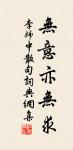 無意亦無求
李師中散句詞典網集